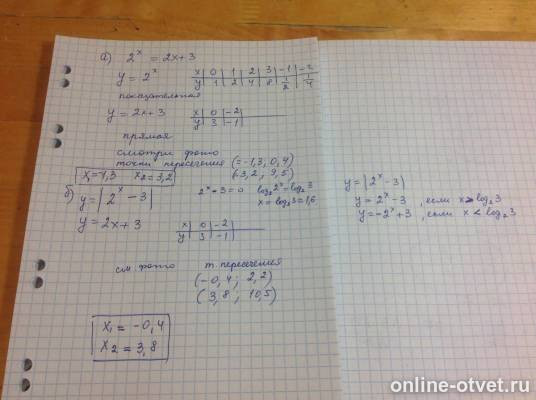 а) 2ˣ = 2x+3
y = 2ˣ
x | 0 | 1 | 2 | 3 | -1 | -2
y | 1 | 2 | 4 | 8 | 1/2 | 1/4
показательная
y = 2x+3
x | 0 | -2
y | 3 | -1
прямая
смотри фото
точки пересечения (≈-1,3; 0,4)
(3,2; 9,5)
x₁=-1,3 x₂=3,2
б) y = |2ˣ - 3|
2ˣ - 3 = 0 log₂2ˣ = log₂3
x = log₂3 = 1,6
y = 2x+3
x | 0 | -2
y | 3 | -1
см. фото т. пересечения
(-0,4; 2,2)
(3,8; 10,5)
x₁ = -0,4
x₂ = 3,8
y = |2ˣ - 3|
y = 2ˣ - 3, если x > log₂3
y = -2ˣ + 3, если x < log₂3
online-otvet.ru